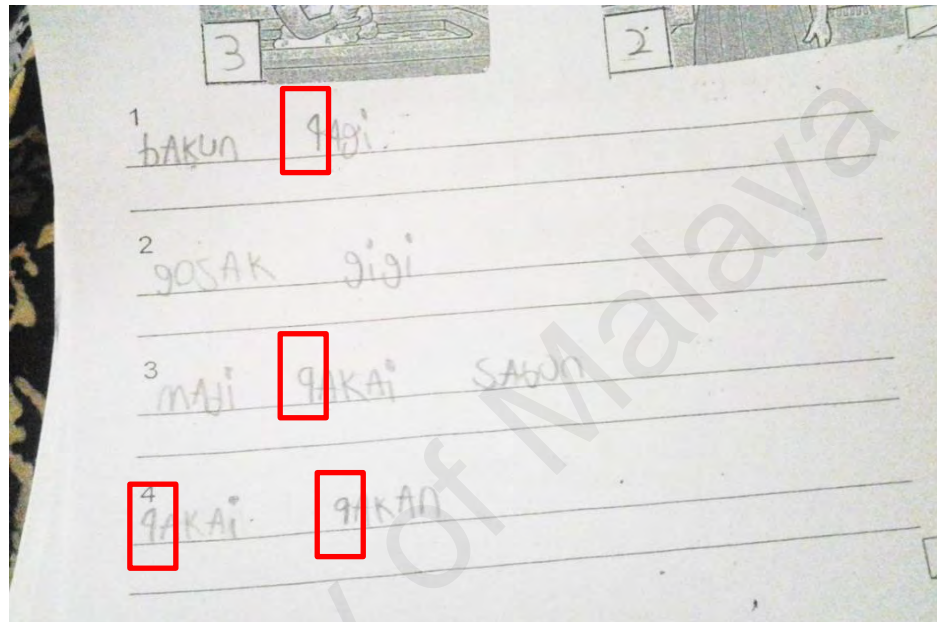 3 2
1 bAKUn qAgi.
2 gOSAK gigi
3 qAKAi SAbUn
4 qAKAi. qAKAn
y of Malaya